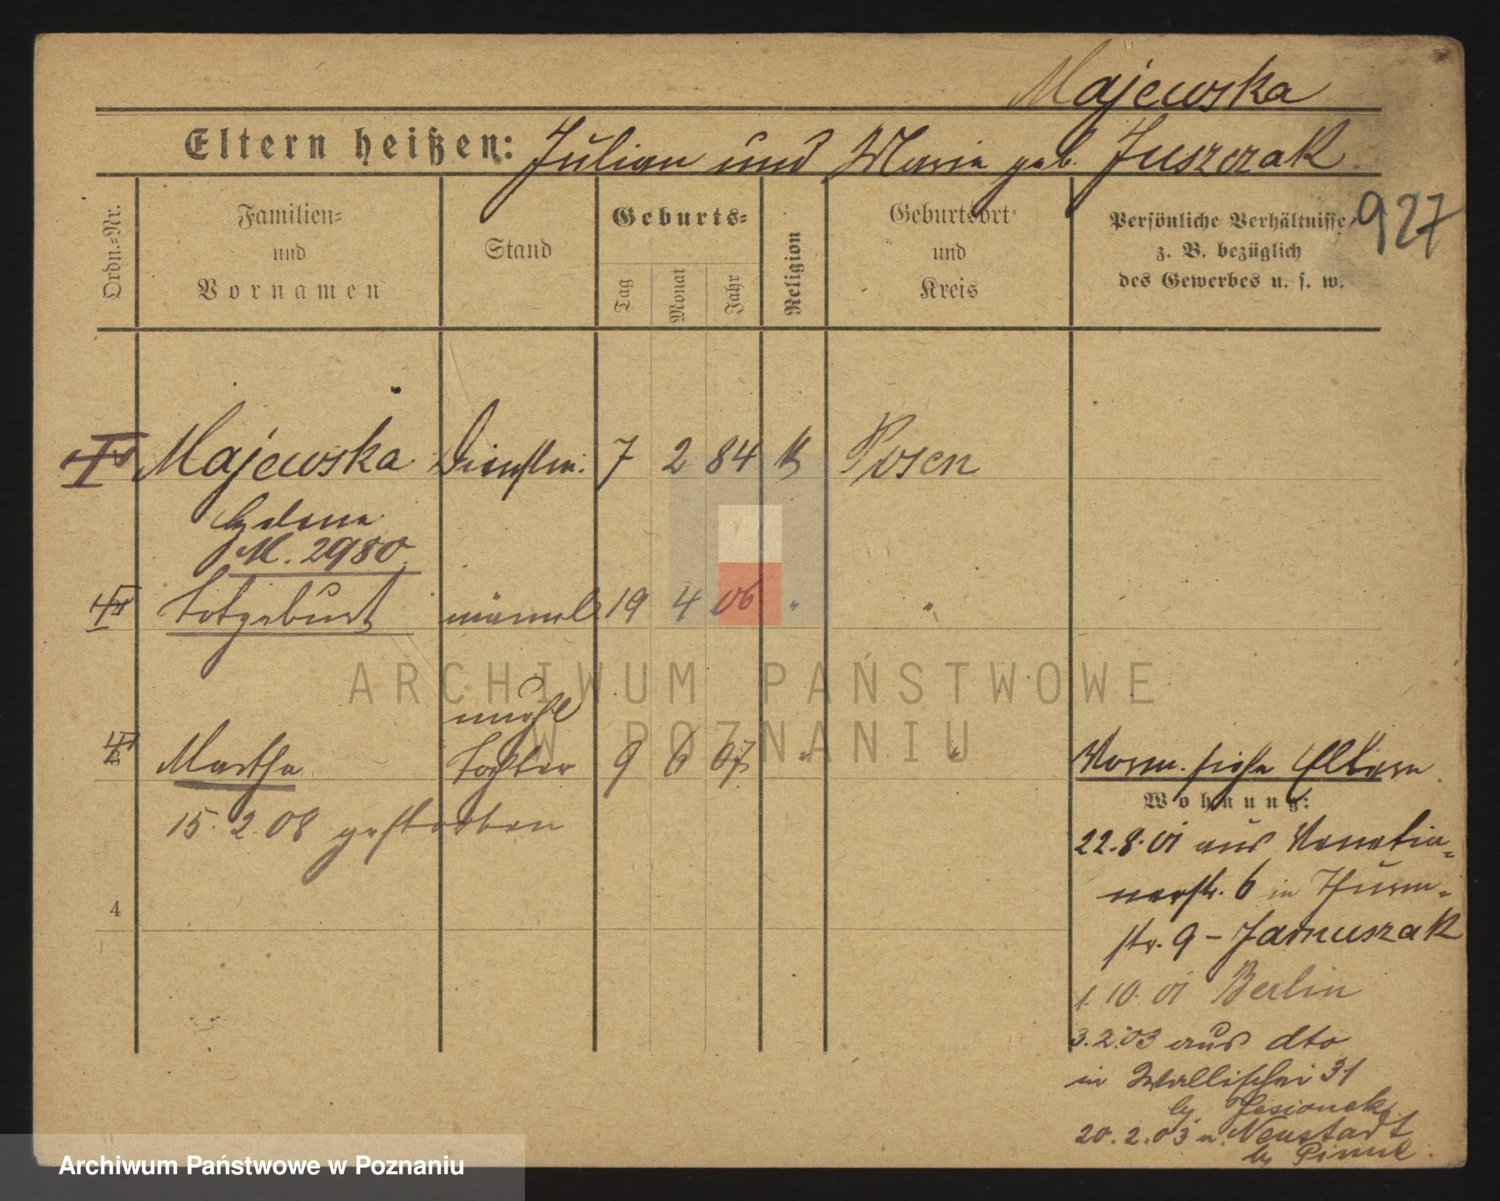 Majewska
Eltern heißen: Julian und Marie geb. Juszczak
927
Ordn.-Nr.
Familien-
und
Vornamen
Stand
Geburts-
Tag
Monat
Jahr
Religion
Geburtsort
und
Kreis
Persönliche Verhältnisse
z. B. bezüglich
des Gewerbes u. s. w.
Majewska Dienstm. 7 2 84 K Posen
Helene
M. 2980
Totgeburt männl. 19 4 06 " "
unehl
Martha Tochter 9 6 07 " "
15. 2. 08 gestorben
4
Vorm. siehe Eltern
Wohnung:
22.8.01 aus Venetia-
nerstr. 6 in Thurm-
str. 9 - Januszak
1. 10. 01 Berlin
3.2.03 aus dto
in Wallischei 31
by Jesionek
20.2.03 n. Neustadt
by Pinne.
ARCHIWUM PAŃSTWOWE
W POZNANIU
Archiwum Państwowe w Poznaniu